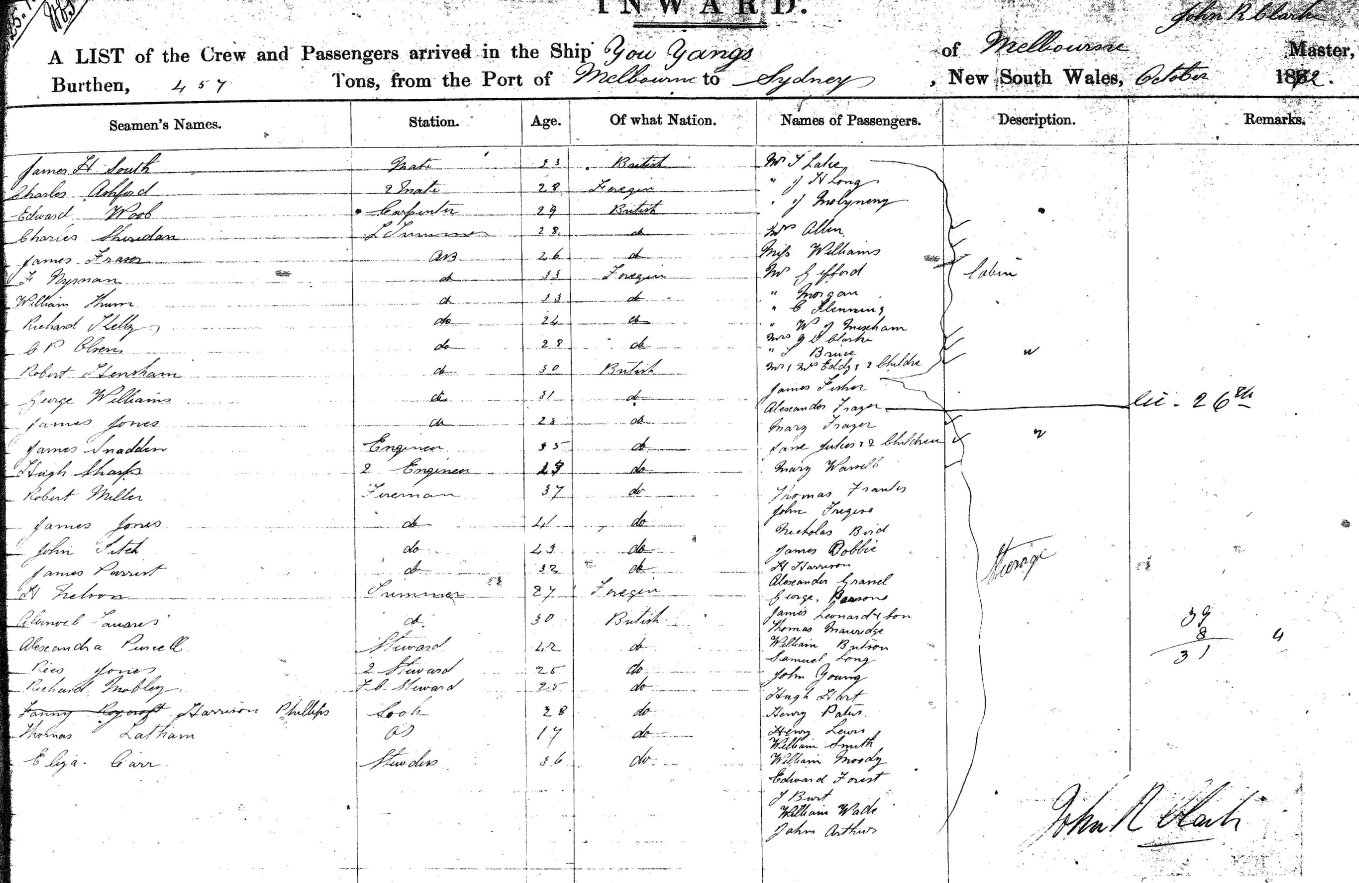 INWARD.
John R Clark
A LIST of the Crew and Passengers arrived in the Ship You Yangs of Melbourne Master,
Burthen, 457 Tons, from the Port of Melbourne to Sydney, New South Wales, October 18
Seamen's Names. Station. Age. Of what Nation. Names of Passengers. Description. Remarks.
James H South Mate 23 British Mr T Lake
Charles Ashford 2 Mate 28 Foregin " J H Long
Edward Woob Carpenter 29 British " J Molyneny
Charles Sheridan L Trimmer 28 d Mrs Allen
James Fraser AB 26 d Miss Williams
F Nyman d 33 Foregin Mr Gifford Cabin
William Thum d 23 d " Morgan
Richard Kelly do 24 d " C Flenning
" W J Mescham
C P Olsen do 28 do Mrs J D Clarke
" T Brice "
Robert Hensham d 30 British Mr & Mrs Eddy & 2 Childre
James Fisher
George Williams do 31 d Alexander Frazer lic. 26th
James Jones d 23 d Mary Frazer
James Snadden Engineer 35 do Jane Julios & 2 Children "
Hugh Sharp 2 Engineer 23 do Mary Warrell
Robert Miller Fireman 37 do Thomas Frantes
John Fregers
James Jones do 41 do Nicholas Bird
John Fitch do 43 do James Dobbie Steerage
James Parrist do 32 do H Harrison
H Nelson Trimmer 27 Foregin Alexander Gravel
George Parsons
Manoel Tavares d 30 British James Leonard & son 39
Thomas Mauridge 8
Alexandra Purcell Steward 42 do William Butson 31 "
Samuel Long
Rees Jones 2 Steward 26 do John Young
Richard Mobley F.C. Steward 25 do Hugh Hart
Fanny Roycroft Harrison Phillips Cook 28 do Henry Pates
Thomas Latham OS 17 do Henry Lewis
William Smith
Eliza Carr Stewdess 36 do William Moody
Edward Forest
J Burt
William Wade
John Arthurs
John R Clark